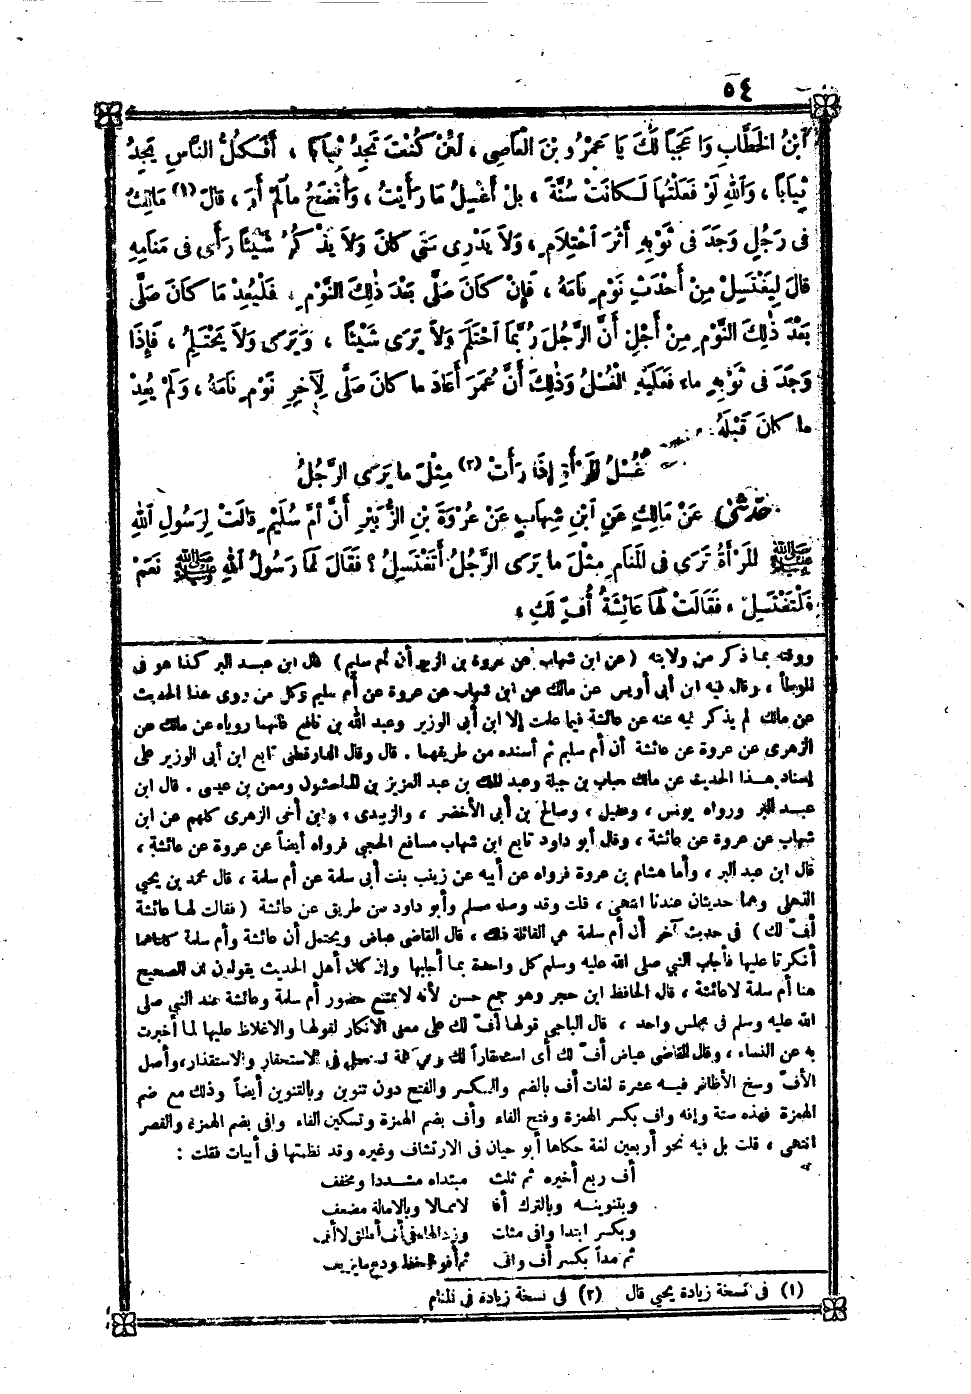 ٥٤
ابْنُ الْخَطَّابِ وَا عَجَبًا لَكَ يَا عَمْرُو بْنَ الْعَاصِى ، لَئِنْ كُنْتَ تَجِدُ ثِيَابًا ، أَفَكُلُّ النَّاسِ يَجِدُ
ثِيَابًا ، وَاللهِ لَوْ فَعَلْتُهَا لَكَانَتْ سُنَّةً ، بَلْ أَغْسِلُ مَا رَأَيْتُ ، وَأَنْضَحُ مَالَمْ أَرَ ، قَالَ (١) مَالِكٌ
فِى رَجُلٍ وَجَدَ فِى ثَوْبِهِ أَثَرَ احْتِلَامٍ ، وَلَا يَدْرِى مَتَى كَانَ وَلَا يَذْكُرُ شَيْئًا رَأَى فِى مَنَامِهِ
قَالَ لِيَغْتَسِلْ مِنْ أَحْدَثِ نَوْمٍ نَامَهُ ، فَإِنْ كَانَ صَلَّى بَعْدَ ذٰلِكَ النَّوْمِ ، فَلْيُعِدْ مَا كَانَ صَلَّى
بَعْدَ ذٰلِكَ النَّوْمِ مِنْ أَجْلِ أَنَّ الرَّجُلَ رُبَّمَا احْتَلَمَ وَلَا يَرَى شَيْئًا ، وَيَرَى وَلَا يَحْتَلِمُ ، فَإِذَا
وَجَدَ فِى ثَوْبِهِ مَاءً فَعَلَيْهِ الْغُسْلُ وَذٰلِكَ أَنَّ عُمَرَ أَعَادَ مَا كَانَ صَلَّى لِآخِرِ نَوْمٍ نَامَهُ ، وَلَمْ يُعِدْ
مَا كَانَ قَبْلَهُ .
غُسْلُ الْمَرْأَةِ إِذَا رَأَتْ (٢) مِثْلَ مَا يَرَى الرَّجُلُ
حَدَّثَنِى عَنْ مَالِكٍ عَنِ ابْنِ شِهَابٍ عَنْ عُرْوَةَ بْنِ الزُّبَيْرِ أَنَّ أُمَّ سُلَيْمٍ قَالَتْ لِرَسُولِ اللهِ
ﷺ الْمَرْأَةُ تَرَى فِى الْمَنَامِ مِثْلَ مَا يَرَى الرَّجُلُ أَتَغْتَسِلُ ؟ فَقَالَ لَهَا رَسُولُ اللهِ ﷺ نَعَمْ
فَلْتَغْتَسِلْ ، فَقَالَتْ لَهَا عَائِشَةُ أُفٍّ لَكِ ،
ووقته بما ذكر من ولايته (عن ابن شهاب عن عروة بن الزبير أن أم سليم) قال ابن عبد البر كذا هو فى
الموطأ ، وقال فيه ابن أبى أويس عن مالك عن ابن شهاب عن عروة عن أم سليم وكل من روى هذا الحديث
عن مالك لم يذكر فيه عنه عن عائشة فيما علمت إلا ابن أبى الوزير وعبد الله بن نافع فانهما روياه عن مالك عن
الزهرى عن عروة عن عائشة أن أم سليم ثم أسنده من طريقهما . قال وقال الدارقطنى تابع ابن أبى الوزير على
إسناد هذا الحديث عن مالك حباب بن جبلة وعبد الملك بن عبد العزيز بن الماجشون ومعن بن عيسى . قال ابن
عبد البر ورواه يونس ، وعقيل ، وصالح بن أبى الأخضر ، والزبيدى ، وابن أخى الزهرى كلهم عن ابن
شهاب عن عروة عن عائشة ، وقال أبو داود تابع ابن شهاب مسافع الحجبى فرواه أيضاً عن عروة عن عائشة ،
قال ابن عبد البر ، وأما هشام بن عروة فرواه عن أبيه عن زينب بنت أبى سلمة عن أم سلمة ، قال محمد بن يحيى
الذهلى وهما حديثان عندنا انتهى ، قلت وقد وصله مسلم وأبو داود من طريق عن عائشة ( فقالت لها عائشة
أفّ لك ) فى حديث آخر أن أم سلمة هى القائلة ذلك ، قال القاضى عياض ويحتمل أن عائشة وأم سلمة كلتاهما
أنكرتا عليها فأجاب النبى صلى الله عليه وسلم كل واحدة بما أجابها وإن كان أهل الحديث يقولون إن الصحيح
هنا أم سلمة لا عائشة ، قال الحافظ ابن حجر وهو جمع حسن لأنه لا يمتنع حضور أم سلمة وعائشة عند النبى صلى
الله عليه وسلم فى مجلس واحد ، قال الباجى قولها أفّ لك على معنى الانكار لقولها والاغلاظ عليها لما أخبرت
به عن النساء ، وقال القاضى عياض أفّ لك أى استحقاراً لك وهى كلمة تستعمل فى الاستحقار والاستقذار ، وأصل
الأفّ وسخ الأظافر فيه عشرة لغات أف بالضم والكسر والفتح دون تنوين وبالتنوين أيضاً وذلك مع ضم
الهمزة فهذه ستة وإفه واف بكسر الهمزة وفتح الفاء وأف بضم الهمزة وتسكين الفاء وافى بضم الهمزة والقصر
انتهى ، قلت بل فيه نحو أربعين لغة حكاها أبو حيان فى الارتشاف وغيره وقد نظمتها فى أبيات فقلت :
أف ربع أخيره ثم ثلث مبتداه مشددا ومخفف
وبتنوينه وبالترك أفا لا ممالا وبالامالة مضعف
وبكسر ابتدا وافى مثلث وزد الهاء فى أف أطلق لا أف
ثم مداً بكسر أف واف ثم أفو فاحفظ ودع ما يزيف
(١) فى نسخة زيادة يحيى قال (٢) فى نسخة زيادة فى المنام